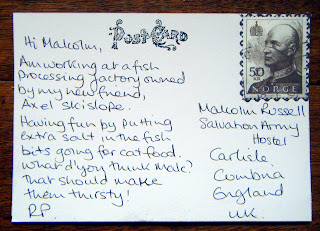 POSTCARD
Hi Malcolm,
Am working at a fish
processing factory owned
by my new friend,
Axel Skislope.
Having fun by putting
extra salt in the fish
bits going for cat food.
What d'you think Malc?
That should make
them thirsty!
R.P.
50
NORGE
Malcolm Russell
Salvation Army
Hostel
Carlisle
Cumbria
England
UK.